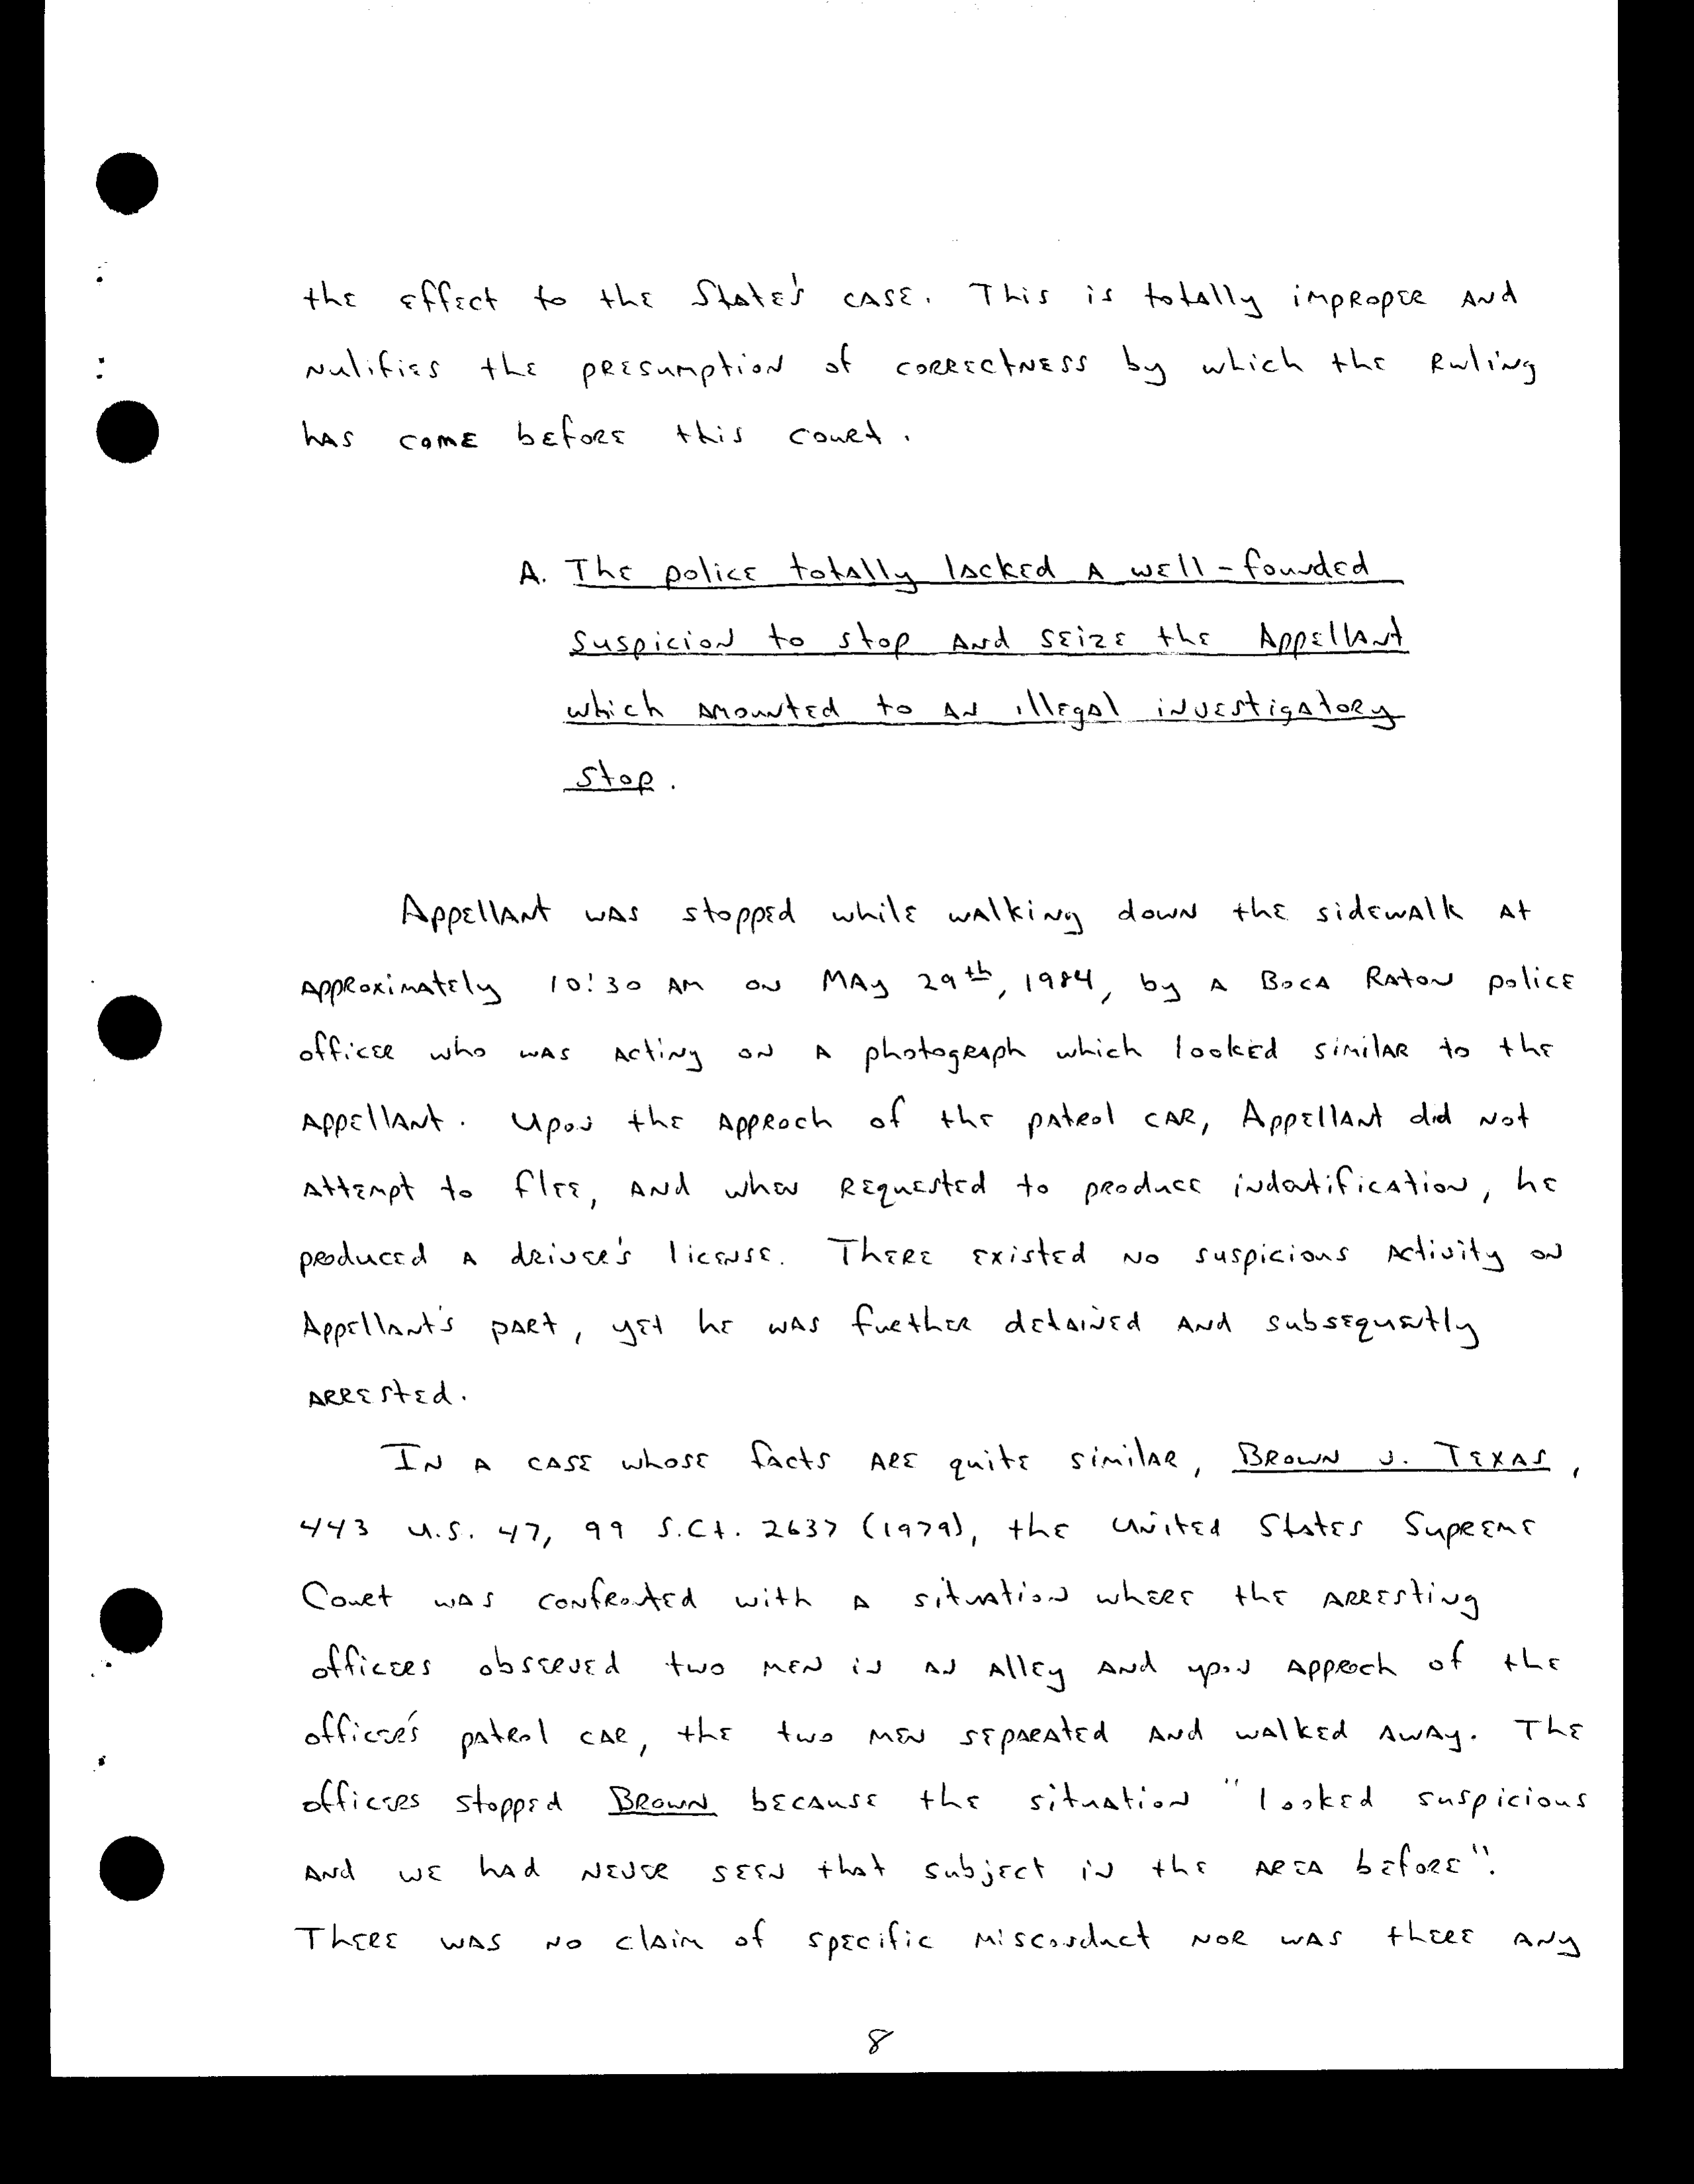 the effect to the State's case. This is totally improper and
nulifies the presumption of correctness by which the Ruling
has come before this court.
A. The police totally lacked a well-founded
suspicion to stop and seize the Appellant
which amounted to an illegal investigatory
stop.
Appellant was stopped while walking down the sidewalk at
approximately 10:30 AM on May 29th, 1984, by a Boca Raton police
officer who was acting on a photograph which looked similar to the
appellant. Upon the approch of the patrol car, Appellant did not
attempt to flee, and when requested to produce indentification, he
produced a driver's license. There existed no suspicious activity on
Appellant's part, yet he was further detained and subsequently
arrested.
In a case whose facts are quite similar, Brown v. Texas,
443 U.S. 47, 99 S.Ct. 2637 (1979), the United States Supreme
Court was confronted with a situation where the arresting
officers observed two men in an alley and upon approch of the
officer's patrol car, the two men separated and walked away. The
officers stopped Brown because the situation "looked suspicious
and we had never seen that subject in the area before".
There was no claim of specific misconduct nor was there any
8